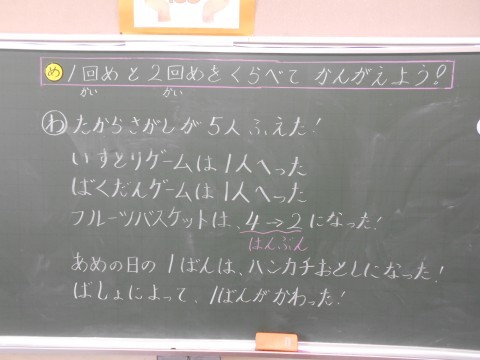 め 1回めと2回めをくらべて かんがえよう!
かい かい
わ たからさがしが5人ふえた!
いすとりゲームは1人へった
ばくだんゲームは1人へった
フルーツバスケットは、4→2になった!
はんぶん
あめの日の1ばんは、ハンカチおとしになった!
ばしょによって、1ばんがかわった!